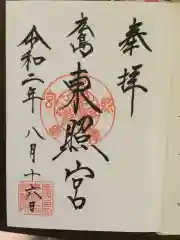 奉拝
東照宮
令和二年 八月十六日